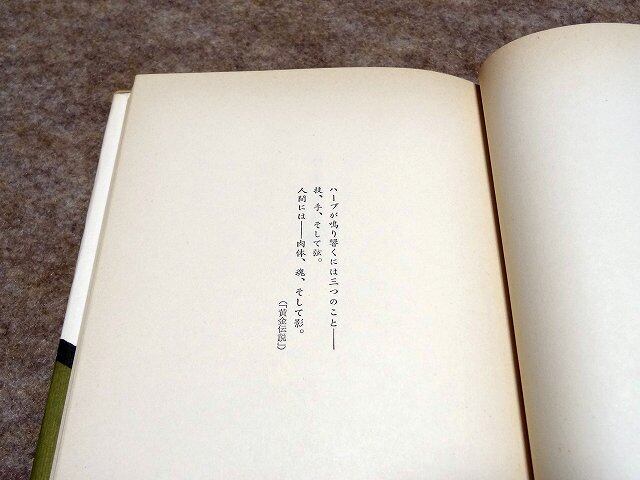 ハープが鳴り響くには三つのこと――
技、手、そして弦。
人間には――肉体、魂、そして影。
（『黄金伝説』）